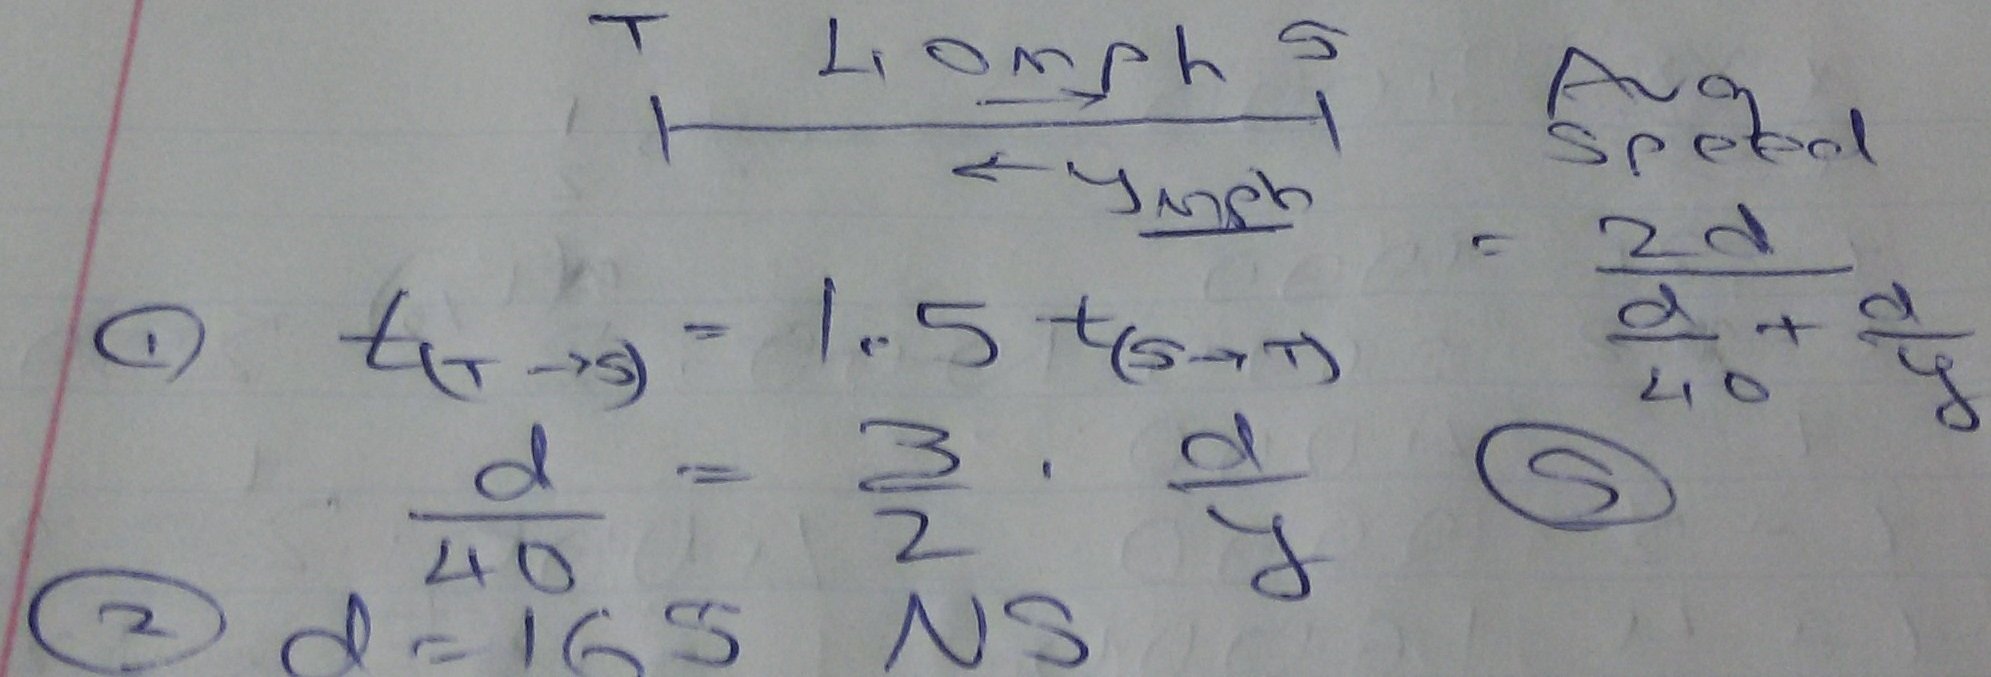 T 40mph S
← y mph
Avg
speed
= 2d / (d/40 + d/y)
① t(T→S) = 1.5 t(S→T)
d/40 = 3/2 · d/y
Ⓢ
② d=165 NS